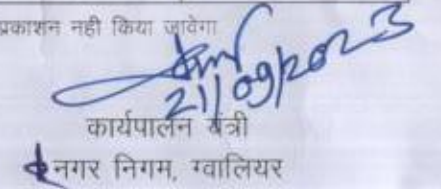 प्रकाशन नही किया जावेगा
21/09/2023
कार्यपालन यंत्री
नगर निगम, ग्वालियर